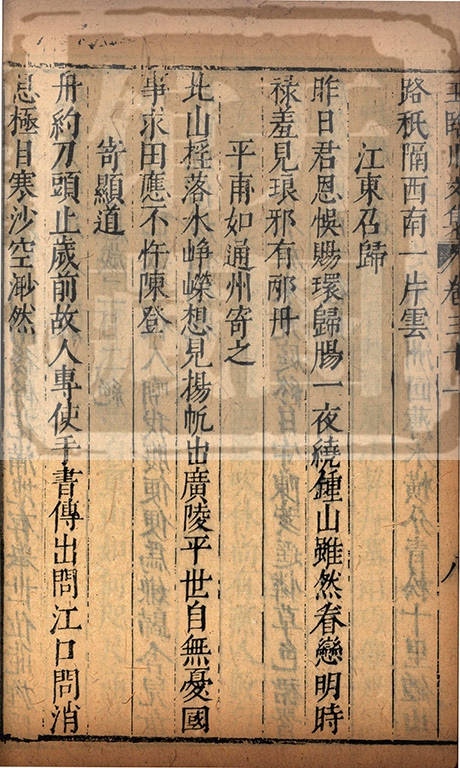 王臨川文集 卷三十一 八
路秖隔西南一片雲
江東召歸
昨日君恩悞賜環歸腸一夜繞鍾山雖然眷戀明時
祿羞見琅邪有邴丹
平甫如通州寄之
北山揺落水崢嶸想見揚帆出廣陵平世自無憂國
事求田應不忤陳登
寄顯道
舟約刀頭止歲前故人專使手書傳出問江口問消
息極目寒沙空渺然